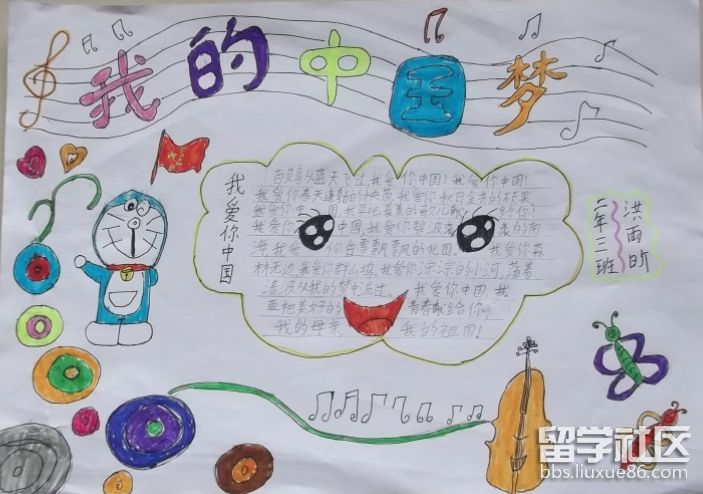 我的中国梦
我爱你中国
百灵鸟从蓝天飞过我爱你中国!我爱你中国!
我爱你春天蓬勃的秧苗我爱你秋日金黄的硕果
我爱你
给你!
我爱你中国我爱你碧波
我爱你白雪飘飘的北国。我爱你森
林无边,我爱你群山
我爱你淙淙的小河,荡着
清波从我的梦中流过。我爱你中国,我
要把美好的青春献给你,
我的母亲,我的祖国!
二年三班
洪雨昕
留学社区
bbs.liuxue86.com